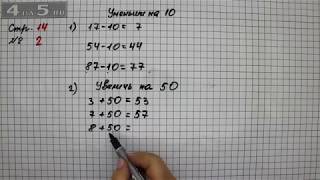 4 на 5.ru
Стр. 14
№ 2
Уменьши на 10
1) 17-10= 7
54-10=44
87-10=77
2) Увеличь на 50
3+50=53
7+50=57
8+50=